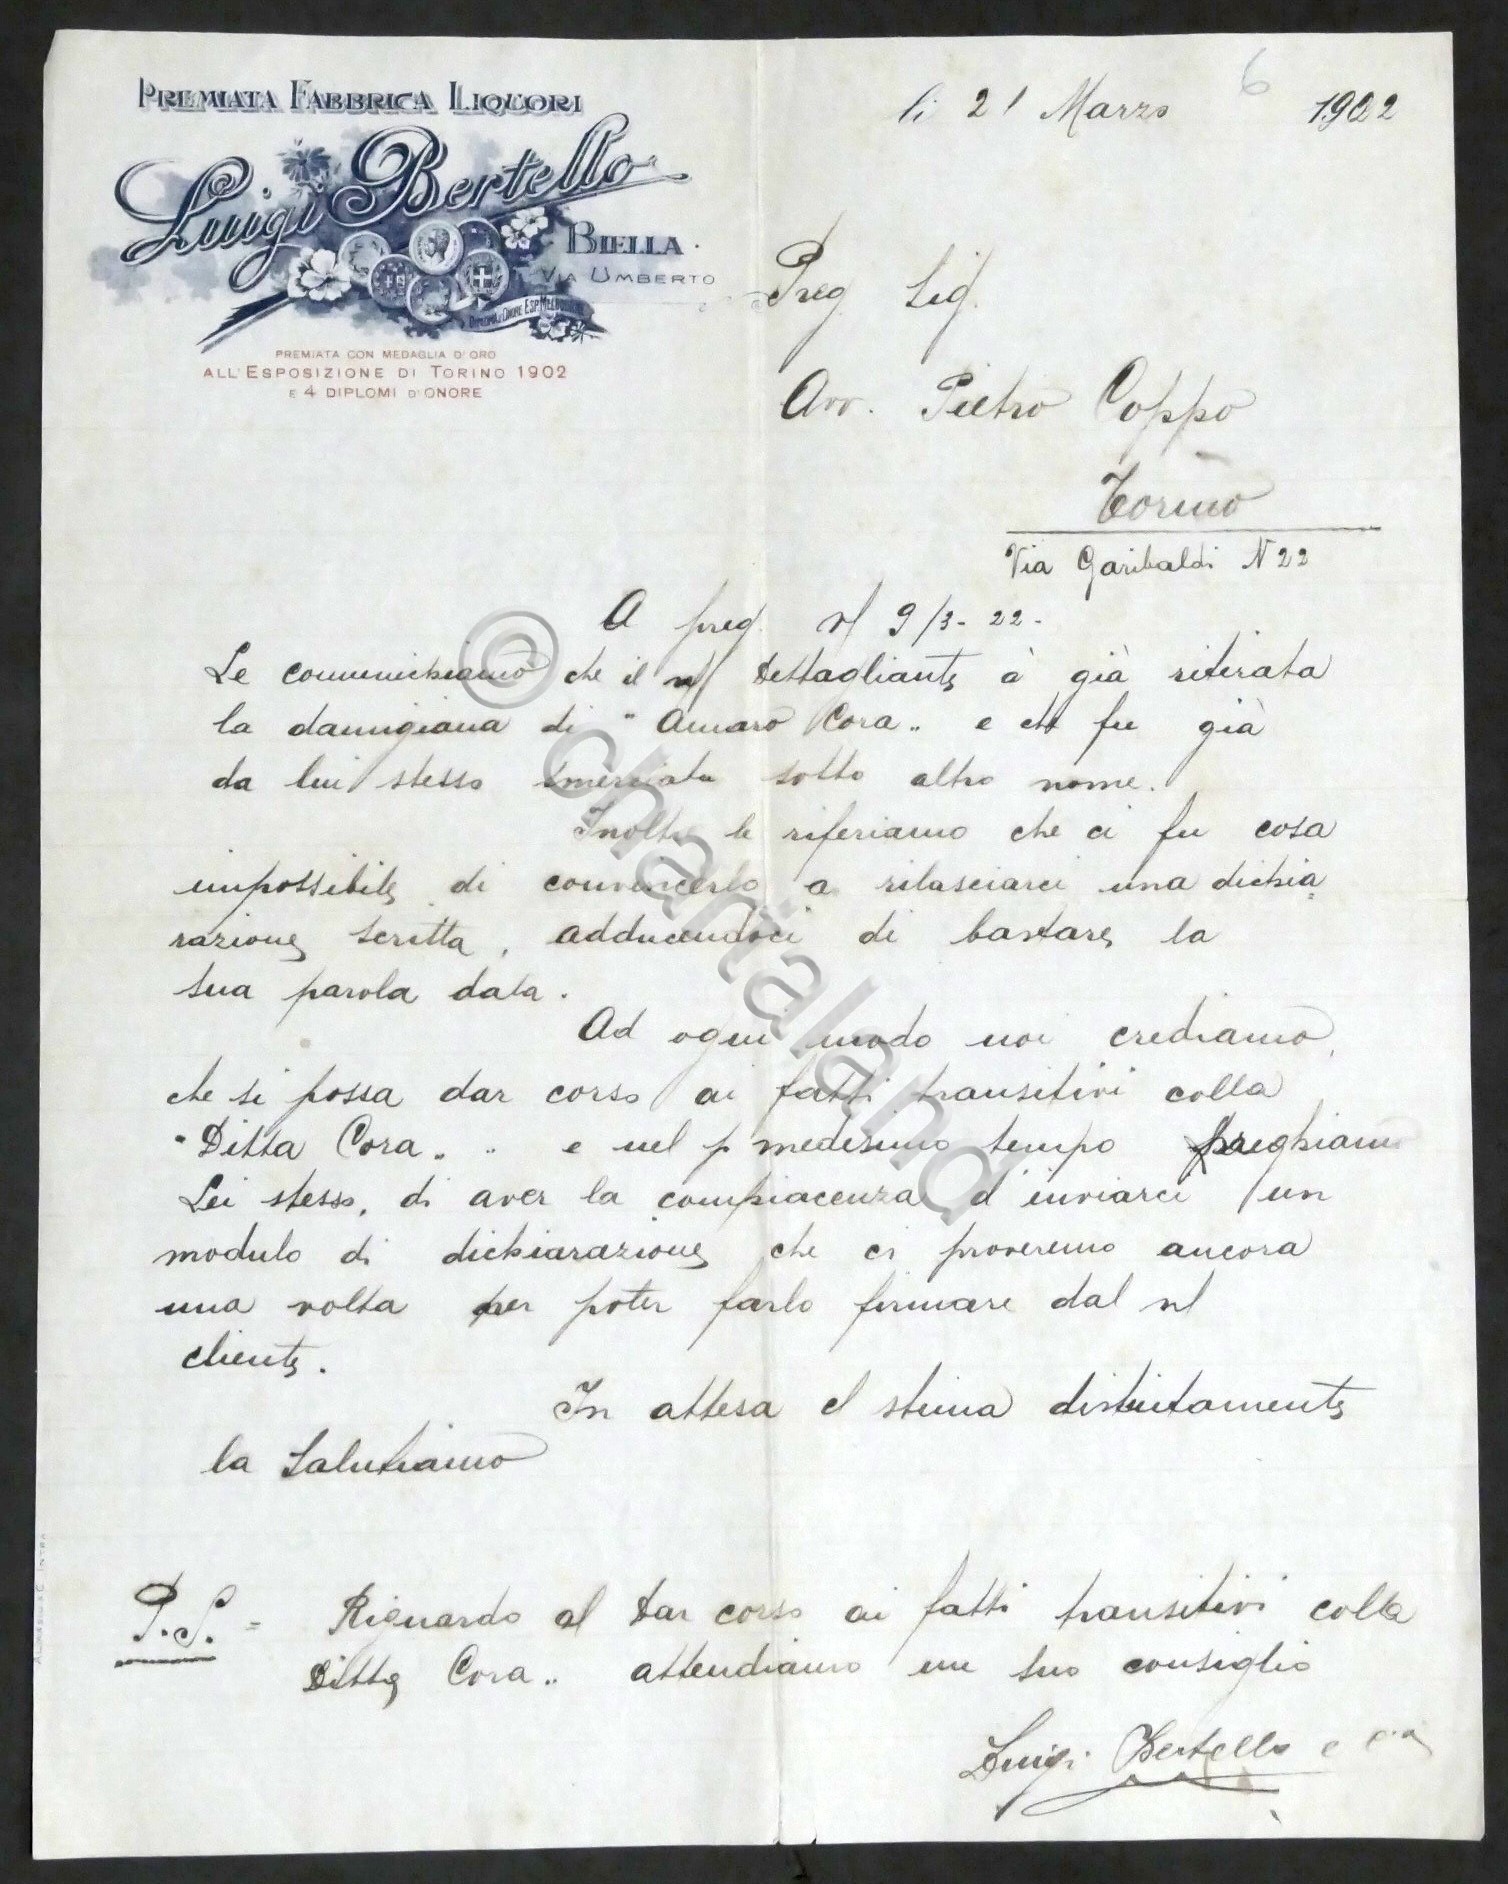 PREMIATA FABBRICA LIQUORI
Luigi Bertello
BIELLA
VIA UMBERTO
DIPLOMA D'ONORE ESP.
PREMIATA CON MEDAGLIA D'ORO
ALL'ESPOSIZIONE DI TORINO 1902
E 4 DIPLOMI D'ONORE
6
li 21 Marzo 1922
Preg. Sig.
Avv. Pietro Coppo
Torino
Via Garibaldi N 22
A preg. v/ 9/3-22-
Le comunichiamo che il n/ dettagliante à già ritirata
la damigiana di "Amaro Cora„ e che fu già
da lui stesso smerciata sotto altro nome.
Inoltre le riferiamo che ci fu cosa
impossibile di convincerlo a rilasciarci una dichia=
razione scritta, adducendoci di bastare la
sua parola data.
Ad ogni modo noi crediamo,
che si possa dar corso ai fatti transitivi colla
"Ditta Cora„ „ e nel medesimo tempo preghiamo
Lei stesso, di aver la compiacenza d'inviarci un
modulo di dichiarazione che ci proveremo ancora
una volta per poter farlo firmare dal n/
cliente.
In attesa e stima distintamente
la Salutiamo
P.S. = Riguardo al dar corso ai fatti transitivi colla
Ditta Cora„ attendiamo un suo consiglio
Luigi Bertello e C.ia
© chartaland